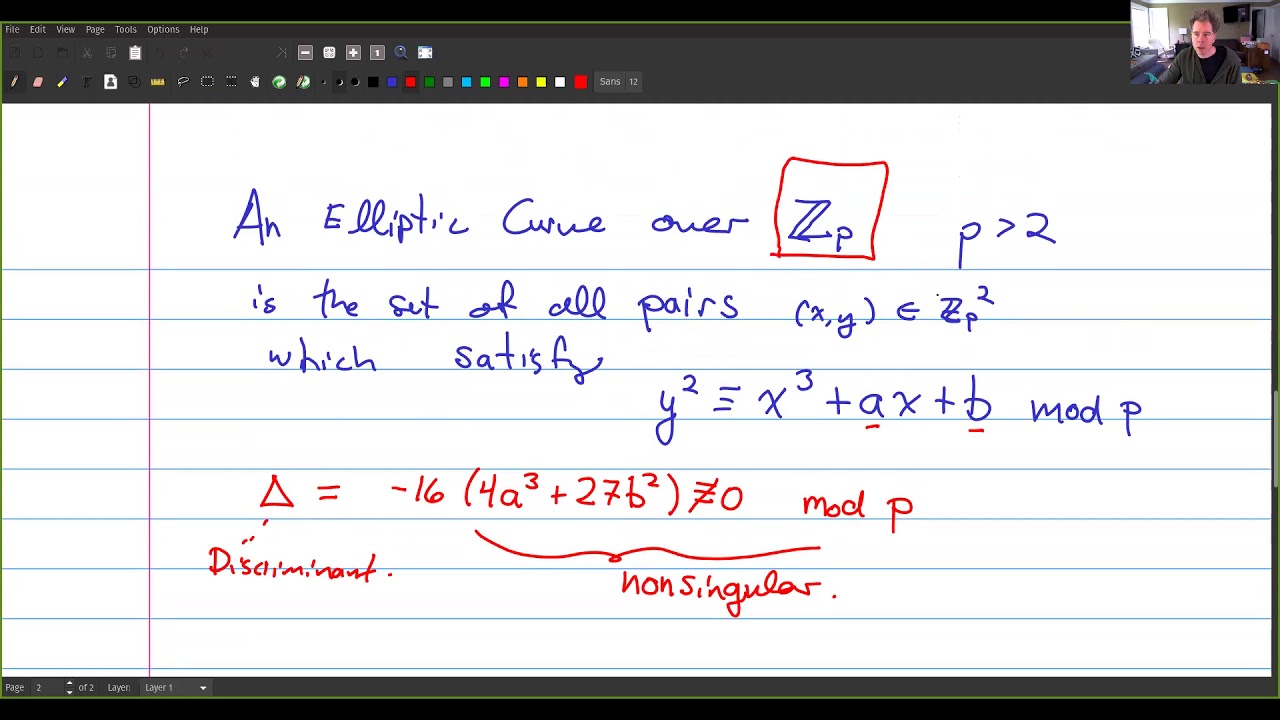 File Edit View Page Tools Options Help
Sans 12
An Elliptic Curve over ℤp p > 2
is the set of all pairs (x,y) ∈ ℤp²
which satisfy
y² ≡ x³ + ax + b mod p
Δ = -16 (4a³ + 27b²) ≢ 0 mod p
Discriminant.
nonsingular.
Page 2 of 2 Layer: Layer 1